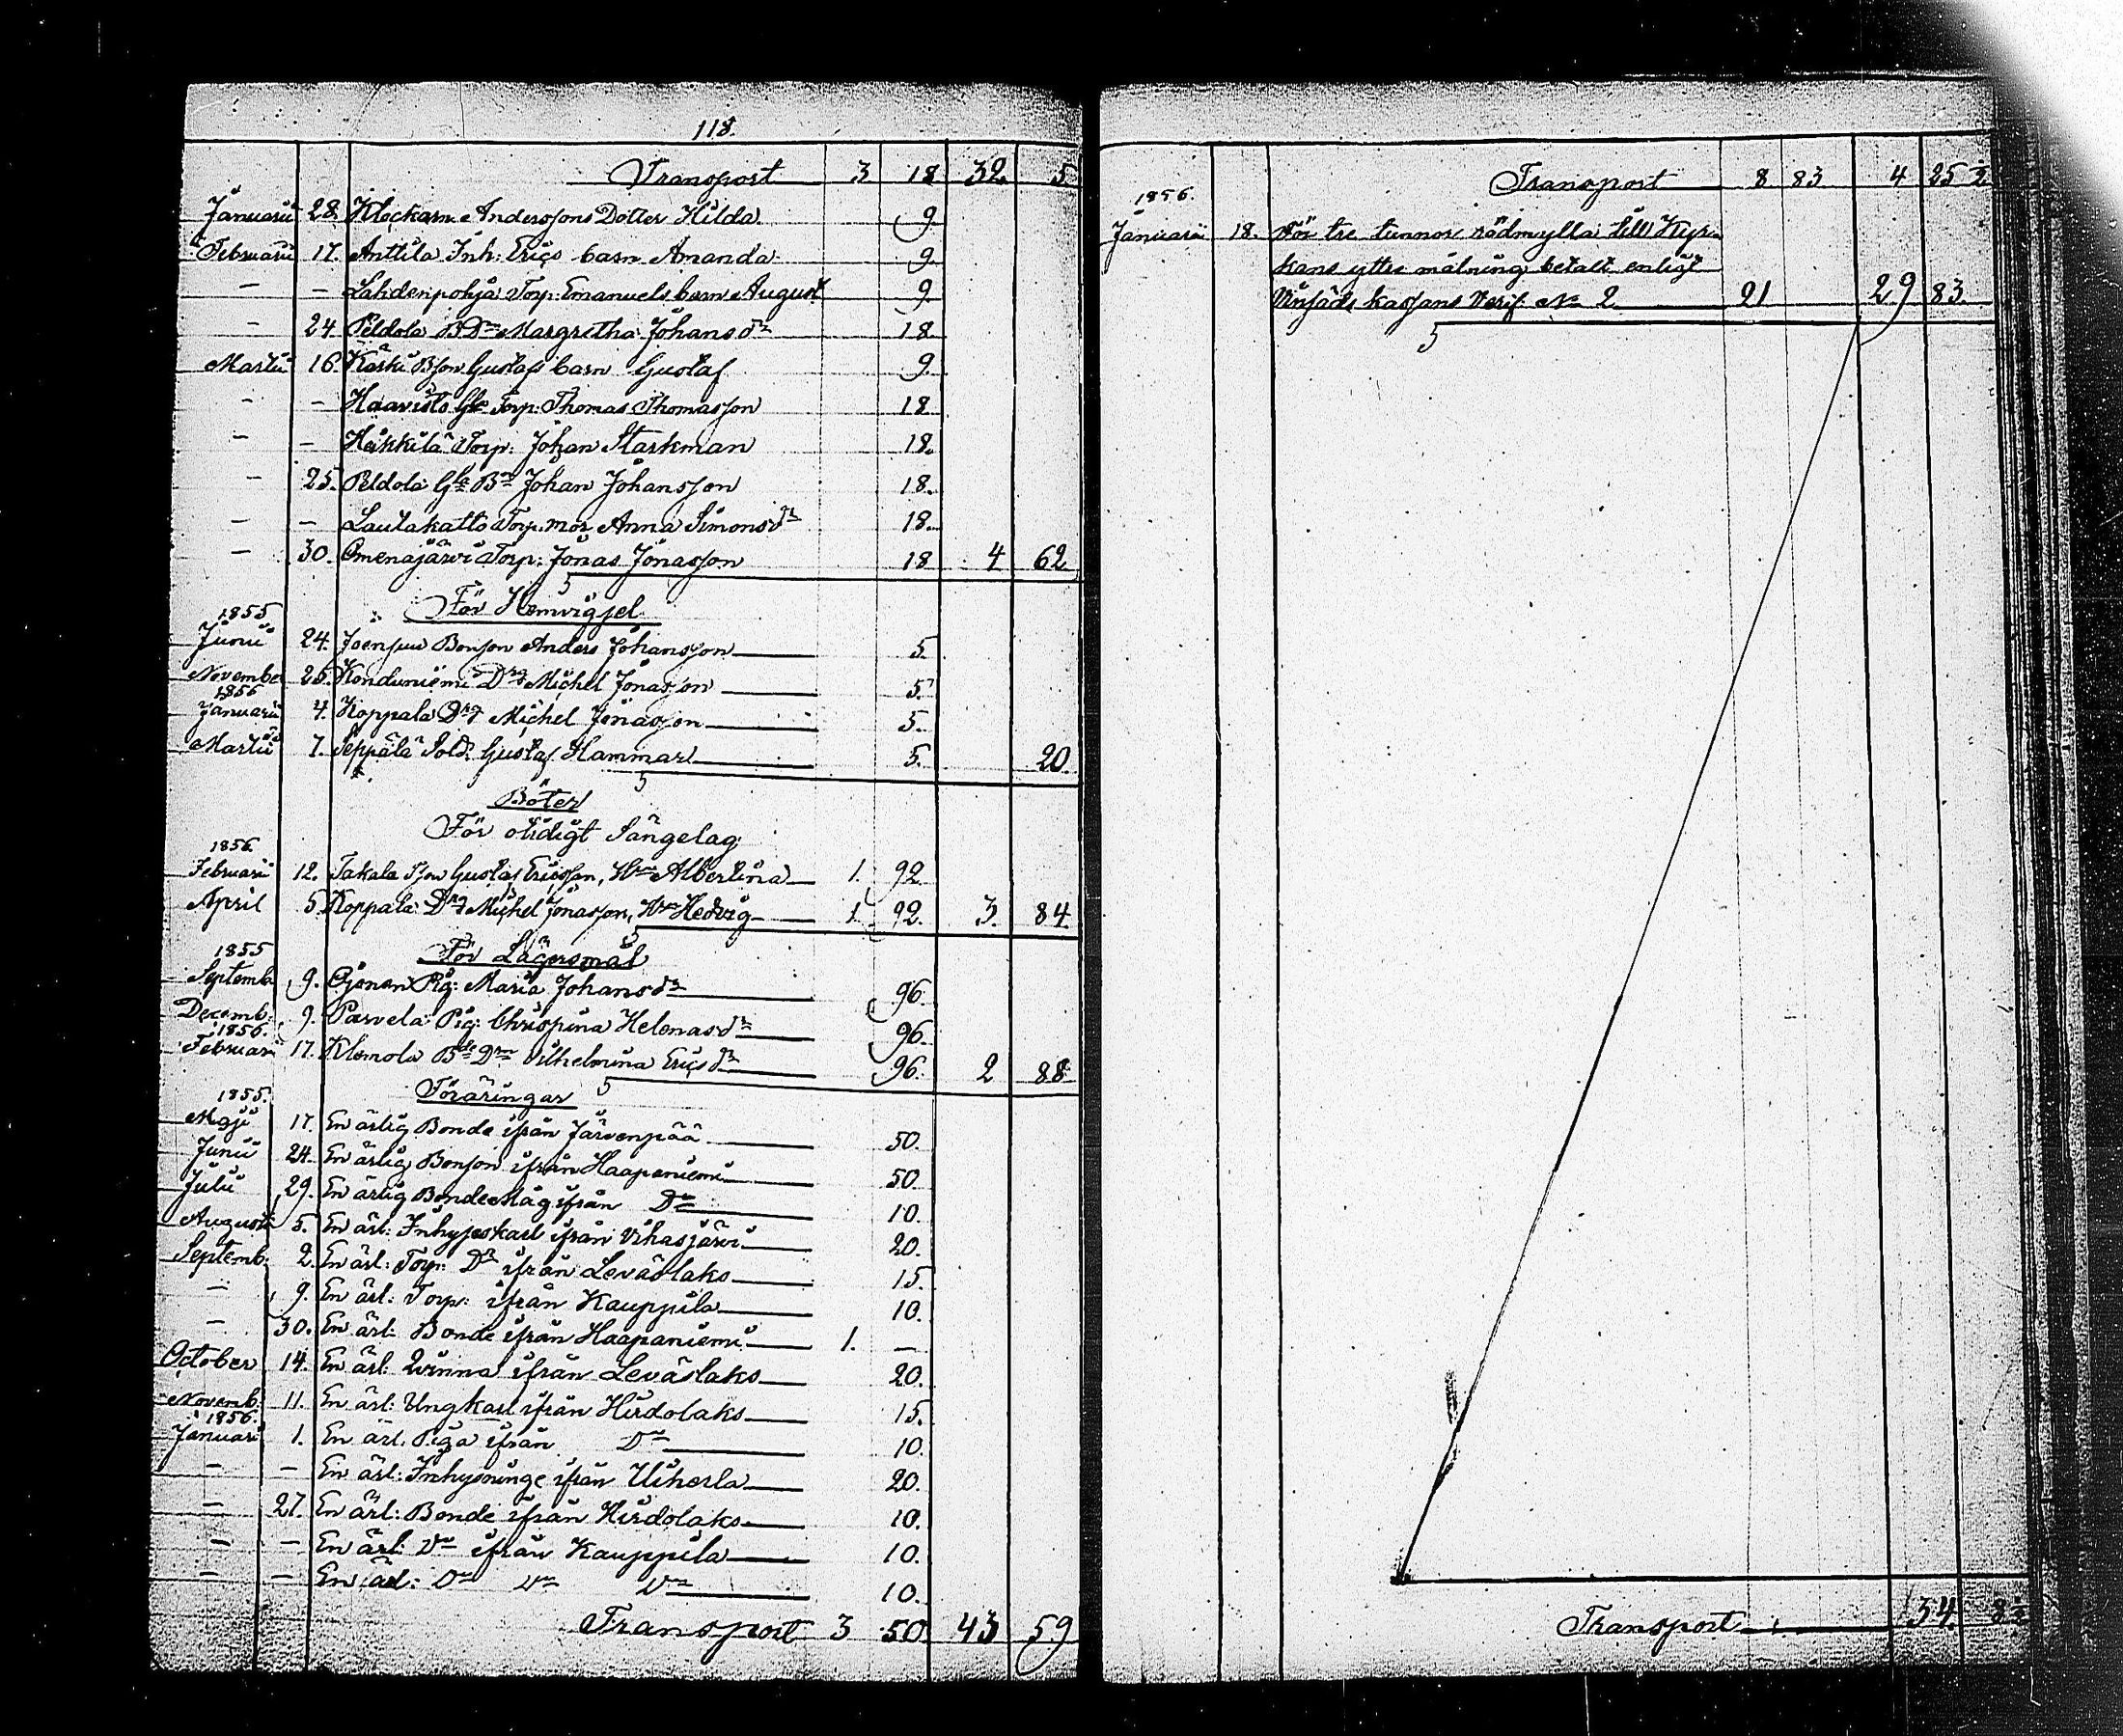 118.
Transport 3 18 32. 5
Januarii 28. Klockarn Anderssons Dotter Hilda 9.
Februarii 17. Anttila Inh: Erics barn Amanda 9.
— — Lahdenpohja Torp: Emanuels barn August 9.
— 24. Peldola BDr Margretha Johansdr 18.
Martii 16. Kärki Bson Gustafs barn Gustaf 9.
— — Haavisto Gle Torp: Thomas Thomasson 18
— — Heikkilä Torp: Johan Starkman 18.
— 25. Peldola Gle Bn Johan Johansson 18.
— — Lautakatto Torp: mor Anna Simonsdr 18.
— 30. Omenajärvi Torp: Jonas Jonasson 18 4 62
För Hemvigsel
1855
Junii 24. Joensuu Bonson Anders Johansson 5.
November 25. Konduniemi Drg Michel Jonasson 5.
1856
Januarii 4. Koppala Drg Michel Jonasson 5.
Martii 7. Seppälä Sold: Gustaf Hammar 5. 20
Böter
För otidigt Sängelag
1856.
Februarii 12. Takala Tson Gustaf Ericsson, Hru Albertina 1. 92
April 5 Koppala Drg Michel Jonasson, Hru Hedvig 1. 92. 3. 84.
För Lägersmål
1855
Septemb. 9. Ojonen Pig: Maria Johansdr 96.
Decemb: 9. Parvela Pig: Chrispina Helenasdr 96.
1856.
Februari 17. Klemola Bde Dr Vilhelmina Ericsdr 96. 2 88
Föräringar
1855.
Maji 17. En ärlig Bonde ifrån Järvenpää 50.
Junii 24. En ärlig Bonson ifrån Haapaniemi 50.
Julii 29. En ärlig Bonde Måg ifrån Do 10.
Augusti 5. En ärl: Inhyseskarl ifrån Vihasjärvi 20.
Septemb. 2. En ärl: Torp: Dr ifrån Leväslaks 15
— 9. En ärl: Torp: ifrån Kauppila 10.
— 30. En ärl: Bonde ifrån Haapaniemi 1. —
October 14. En ärl: Qvinna ifrån Leväslaks 20.
Novemb. 11. En ärl: Ungkarl ifrån Hirdolaks 15.
1856.
Januari 1. En ärl. Piga ifrån Do 10.
— — En ärl: Inhysninge ifrån Uiherla 20.
— 27. En ärl: Bonde ifrån Hirdolaks 10.
— — En ärl: Do ifrån Kauppila 10.
— — En ärl: Do Do Do 10.
Transport 3 50 43 59
Transport 8 83 4 25 2
1856.
Januarii 18. För tre tunnor rödmylla till Kyr-
kans yttre målning betalt enligt
kassans Verif. No 2 21 29 83.
Transport 34. 8